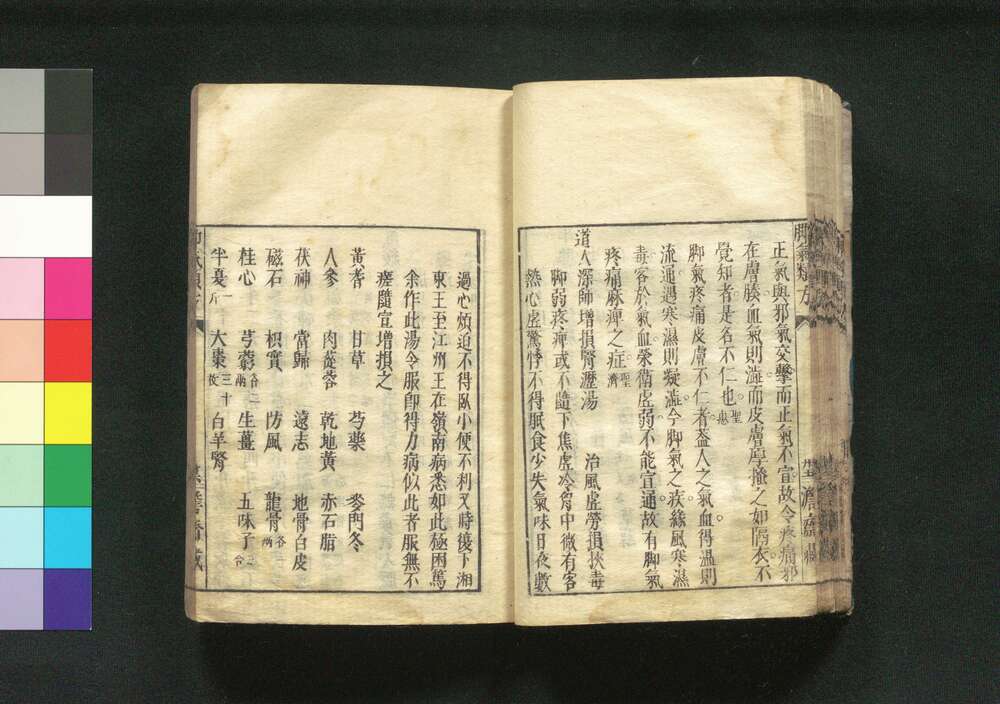 脚氣類方
正氣與邪氣交擊而正氣不宣故令疼痛邪
在膚腠血氣則澁而皮膚厚搔之如隔衣不
覺知者是名不仁也聖惠
脚氣疼痛皮膚不仁者蓋人之氣血得溫則
流通遇寒濕則凝澁今脚氣之疾緣風寒濕
毒客於氣血榮衛虛弱不能宣通故有脚氣
疼痛麻痺之症聖濟
道人深師增損腎瀝湯 治風虛勞損挾毒
脚弱疼痺或不隨下焦虛冷胷中微有客
熱心虛驚悸不得眠食少失氣味日夜數
過心煩迫不得臥小便不利又時復下湘
東王至江州王在嶺南病悉如此極困篤
余作此湯令服卽得力病似此者服無不
瘥隨宜增損之
黃耆 甘草 芍藥 麥門冬
人參 肉蓯蓉 乾地黃 赤石脂
茯神 當歸 遠志 地骨白皮
磁石 枳實 防風 龍骨各一兩
桂心 芎藭各二兩 生薑 五味子
半夏一斤 大棗三十枚 白羊腎